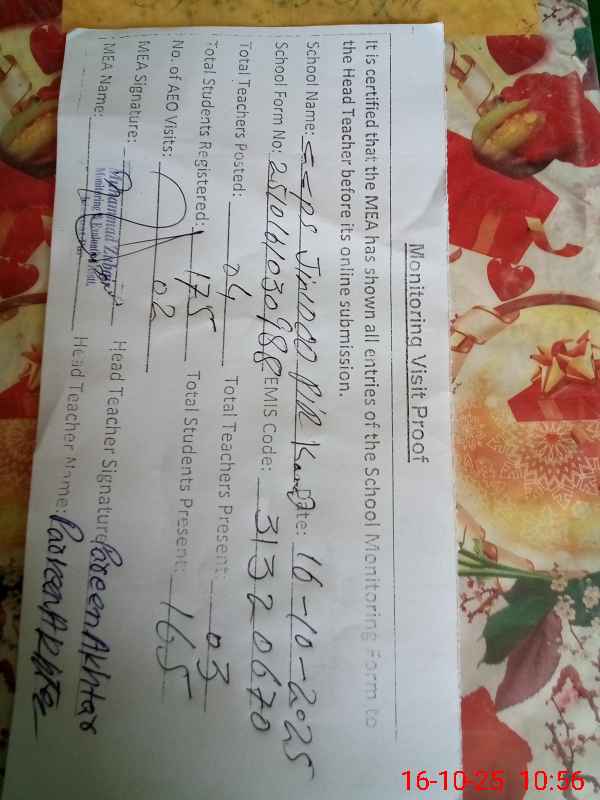 Monitoring Visit Proof
It is certified that the MEA has shown all entries of the School Monitoring Form to
the Head Teacher before its online submission.
School Name: GGPS Jindoo Pir Date: 16-10-2025
School Form No: EMIS Code: 31320670
Total Teachers Posted: 04 Total Teachers Present: 03
Total Students Registered: 175 Total Students Present: 165
No. of AEO Visits: 02
MEA Signature: Head Teacher Signature: Parveen Akhtar
Muhammad
MEA Name: Head Teacher Name: Parveen Akhtar
16-10-25 10:56